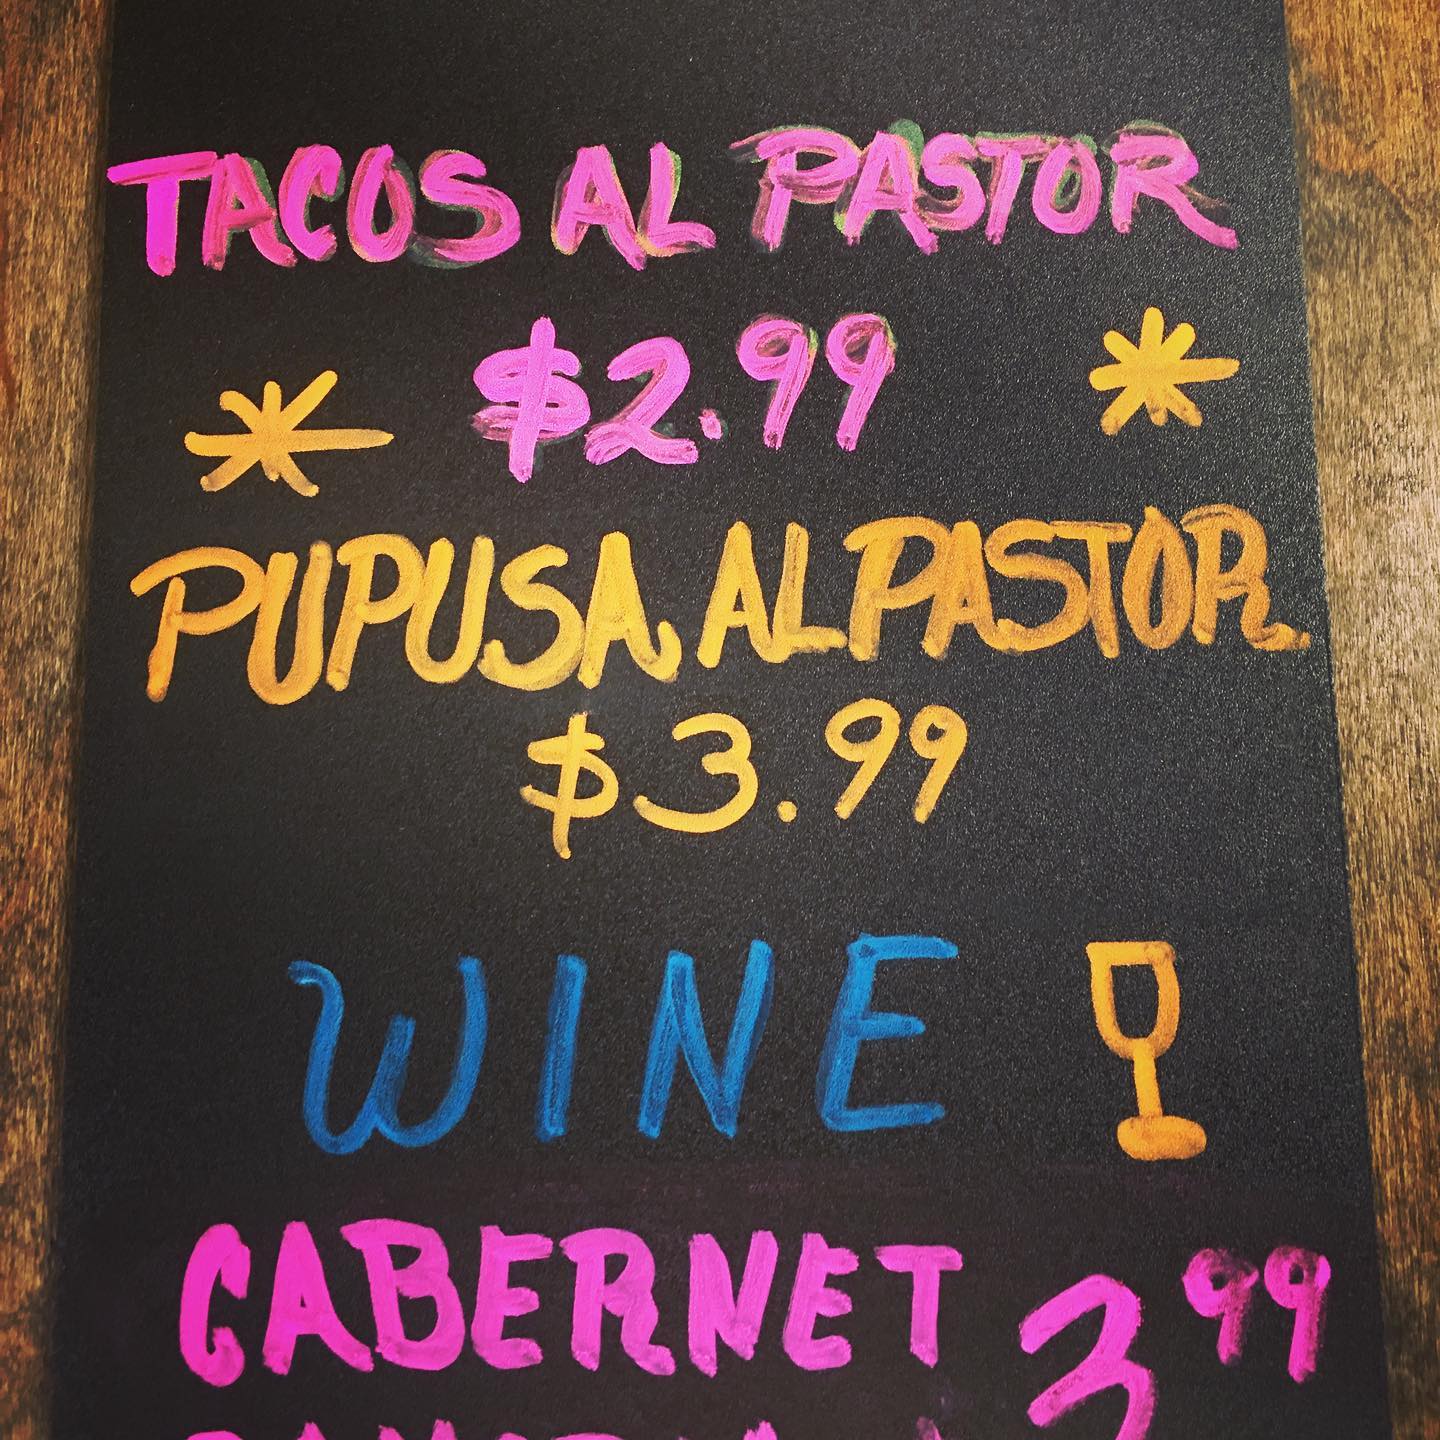 TACOS AL PASTOR
$2.99
PUPUSA AL PASTOR
$3.99
WINE
CABERNET 3.99